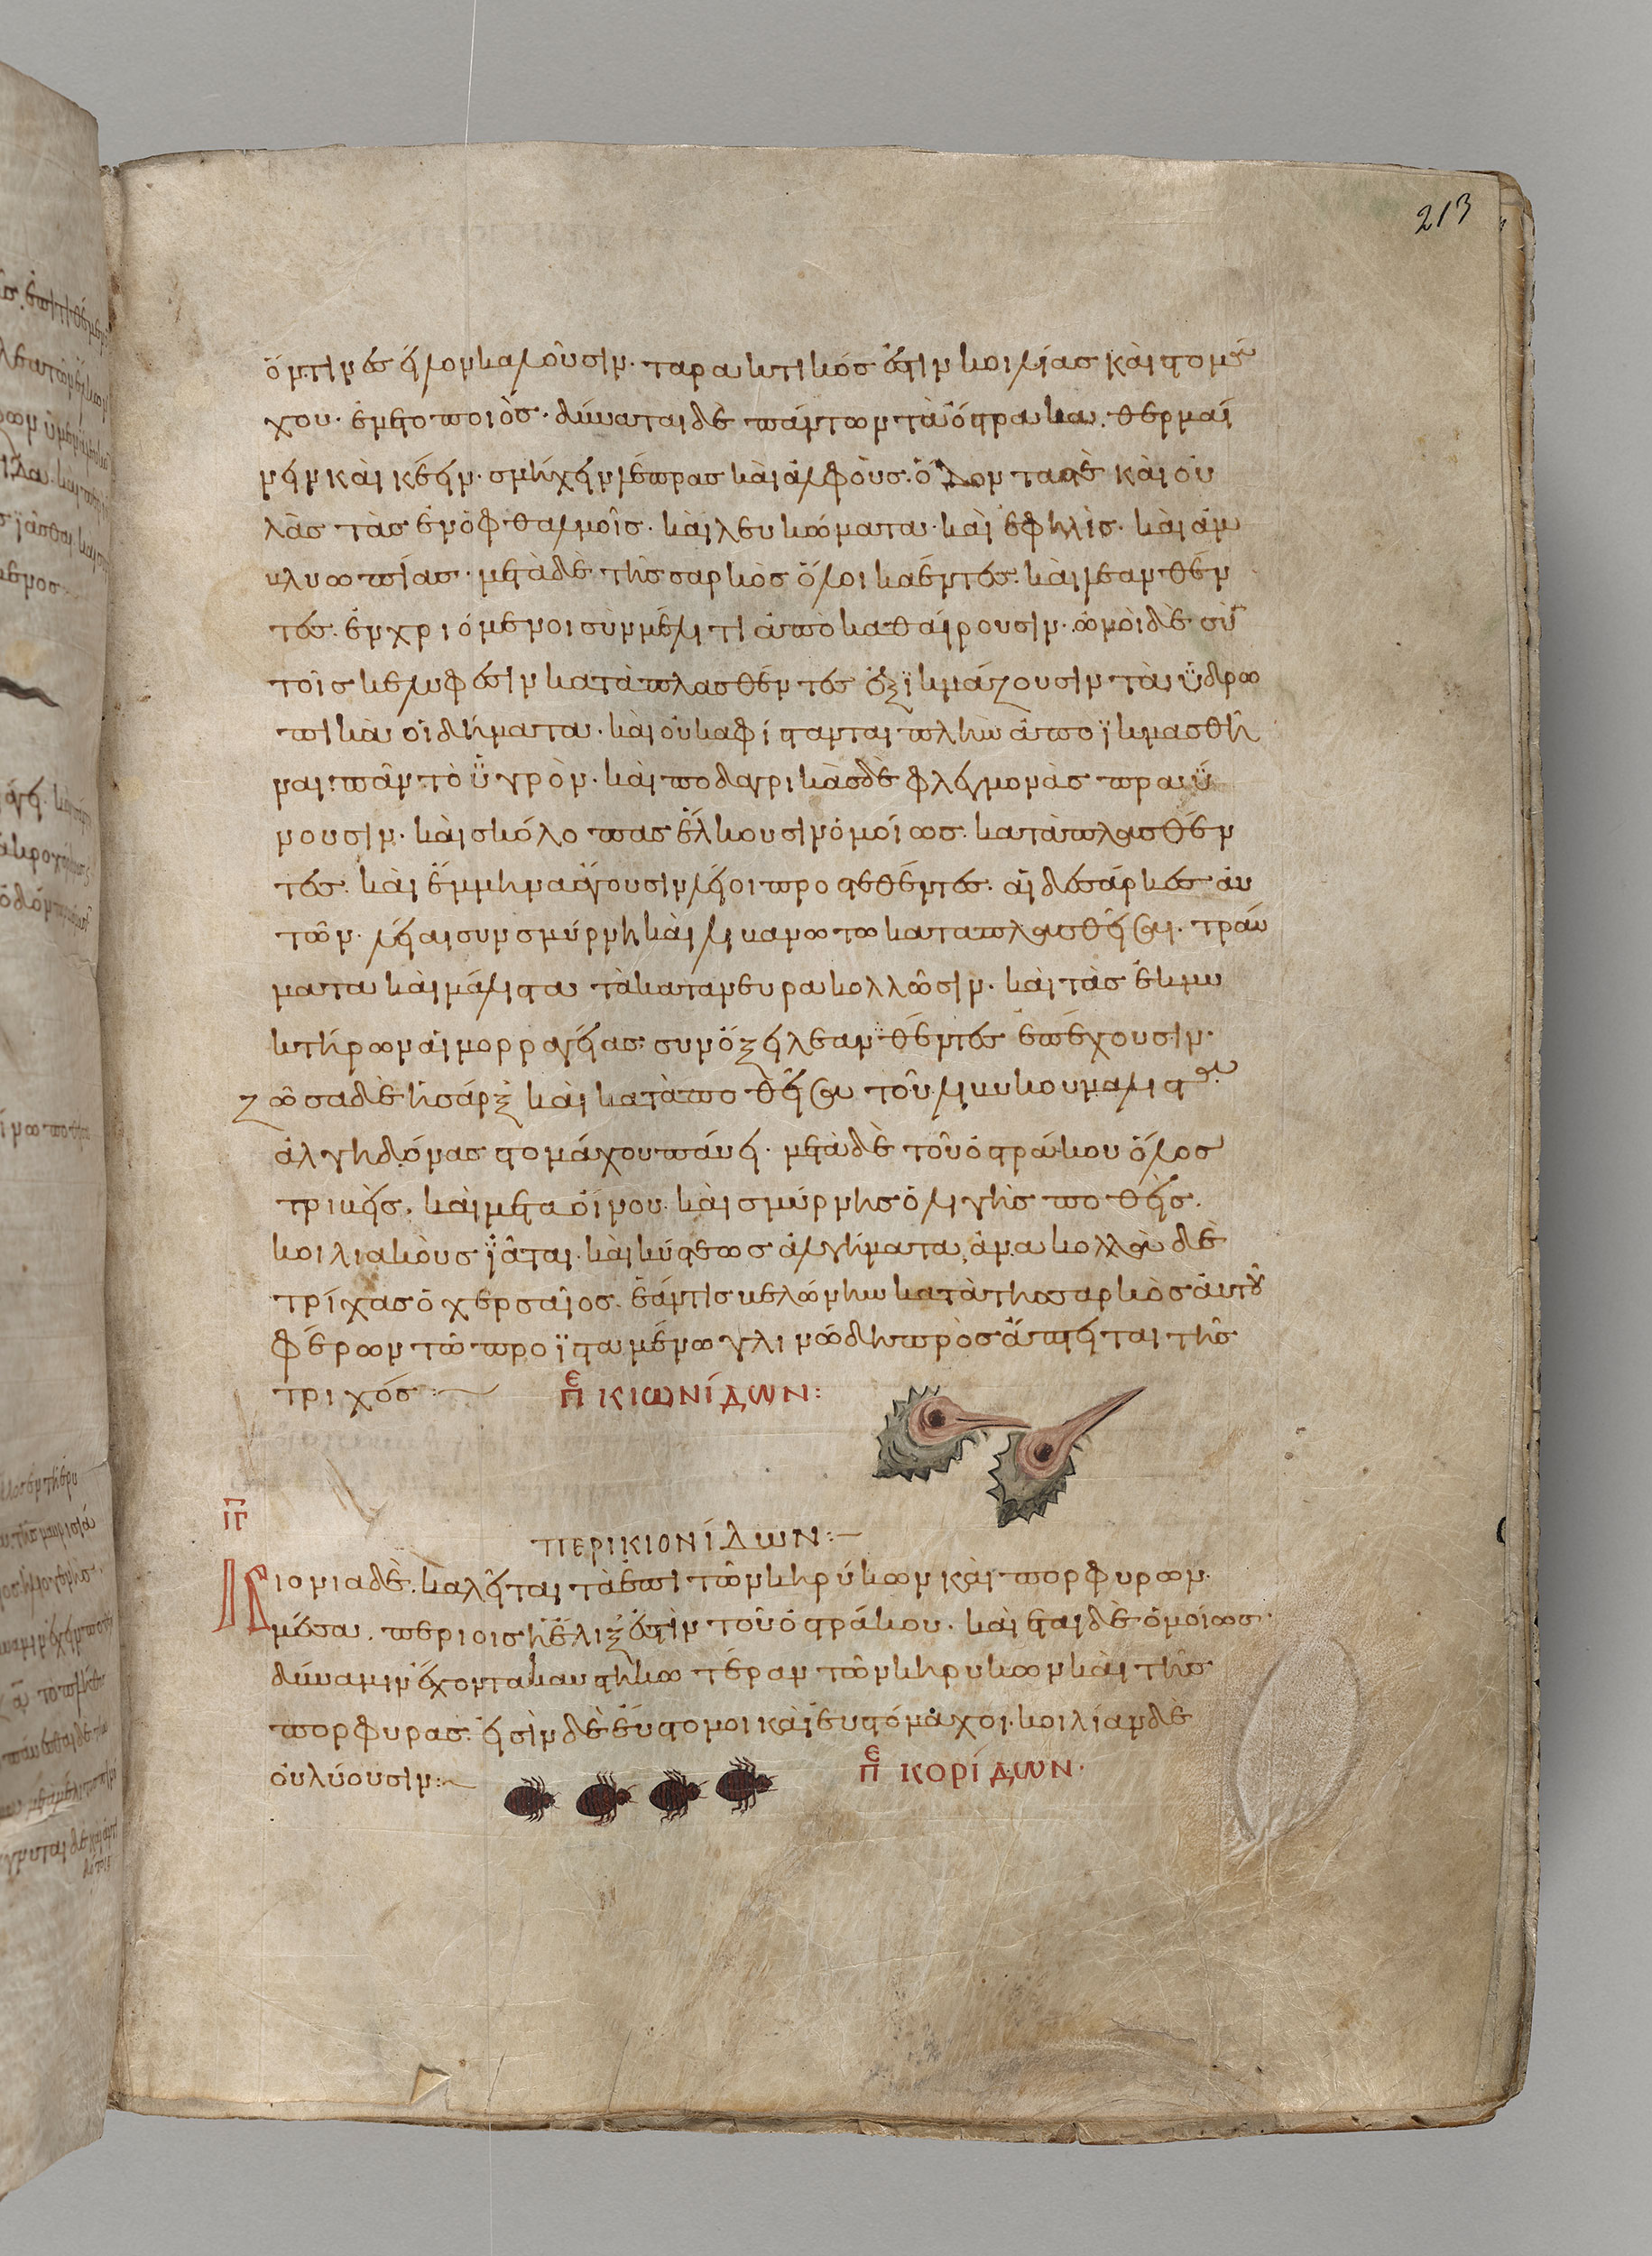 213
ὅντινες ἥλον καλοῦσιν. ταρακτικός ἐστιν κοιλίας καὶ στομά
χου. ἐμετοποιός. δύναται δὲ πάντων τὰ ὄστρακα. θερμαί
νειν καὶ καίειν. σμήχειν λέπρας καὶ ἀλφοὺς. καὶ οὐ
λὰς τὰς ἐν ὀφθαλμοῖς. καὶ λευκώματα. καὶ ἐφηλίς. καὶ ἀμ
βλυωπίας. μετὰ δὲ τῆς σαρκὸς ὅλοι καέντες. καὶ λεανθέν
τες. ἐνχριόμενοι σὺν μέλιτι ἀποκαθαίρουσιν. ὠμοὶ δὲ σὺν
τοῖς κελύφεσιν καταπλασθέντες ἀξικμάζουσιν τὰ ὑδρω
πικὰ οἰδήματα. καὶ οὐκ αφίστανται πλὴν ἀποϊκμασθῆ
ναι πᾶν τὸ ὑγρὸν. καὶ ποδαγρικὰς δὲ φλεγμονὰς πραΰ
νουσιν. καὶ σκόλοπας ἕλκουσιν ὁμοίως. καταπλασθέν
τες. καὶ ἔμμηνα ἄγουσιν λεῖοι προστεθέντες. αἱ δὲ σάρκες αὐ
τῶν. λεῖαι συν σμύρνη καὶ λιβανωτω καταπλασθεῖσαι. τραύ
ματα καὶ μάλιστα τὰ κατα νευρα κολλῶσιν. καὶ τὰς ἐκ μυ
κτήρων αἱμορραγείας συν ὄξει λεανθέντες ἐπέχουσιν.
ζῶσα δὲ ἡ σάρξ καὶ καταποθεῖσα τοῦ λιβυκου μαλιστα
ἀλγηδόνας στομάχου παύει. μετὰ δὲ τοῦ ὀστράκου ὅλος
τριβεὶς. καὶ μετα οἴνου καὶ σμύρνης ὀλιγης ποθεὶς.
κοιλιακοὺς ἰᾶται. καὶ κύστεως ἀλγήματα. ἀνακολλᾶ δὲ
τρίχας ὁ χερσαῖος. ἐάν τις βελόνην κατὰ τῆς σαρκὸς αὐτοῦ
φέρων τῶ προϊσταμένω γλινώδη προσάπτεται τῆς
τριχός:
πε κιωνίδων:
ιγ
περι κιονίδων:
Κιονια δὲ καλεῖται τὰ ἐπὶ τῶν κηρύκων καὶ πορφυρων.
μέσα. περι οις ἡ ἕλιξ ἐστὶν τοῦ ὀστράκου. καίεται δὲ ὁμοίως.
δύναμιν ἔχοντα καυστηκωτέραν τῶν κηρυκων καὶ τῆς
πορφυρας. εἰσὶν δὲ εὔστομοι καὶ ευστόμαχοι. κοιλίαν δὲ
οὐ λύουσιν:
πε κορίδων.